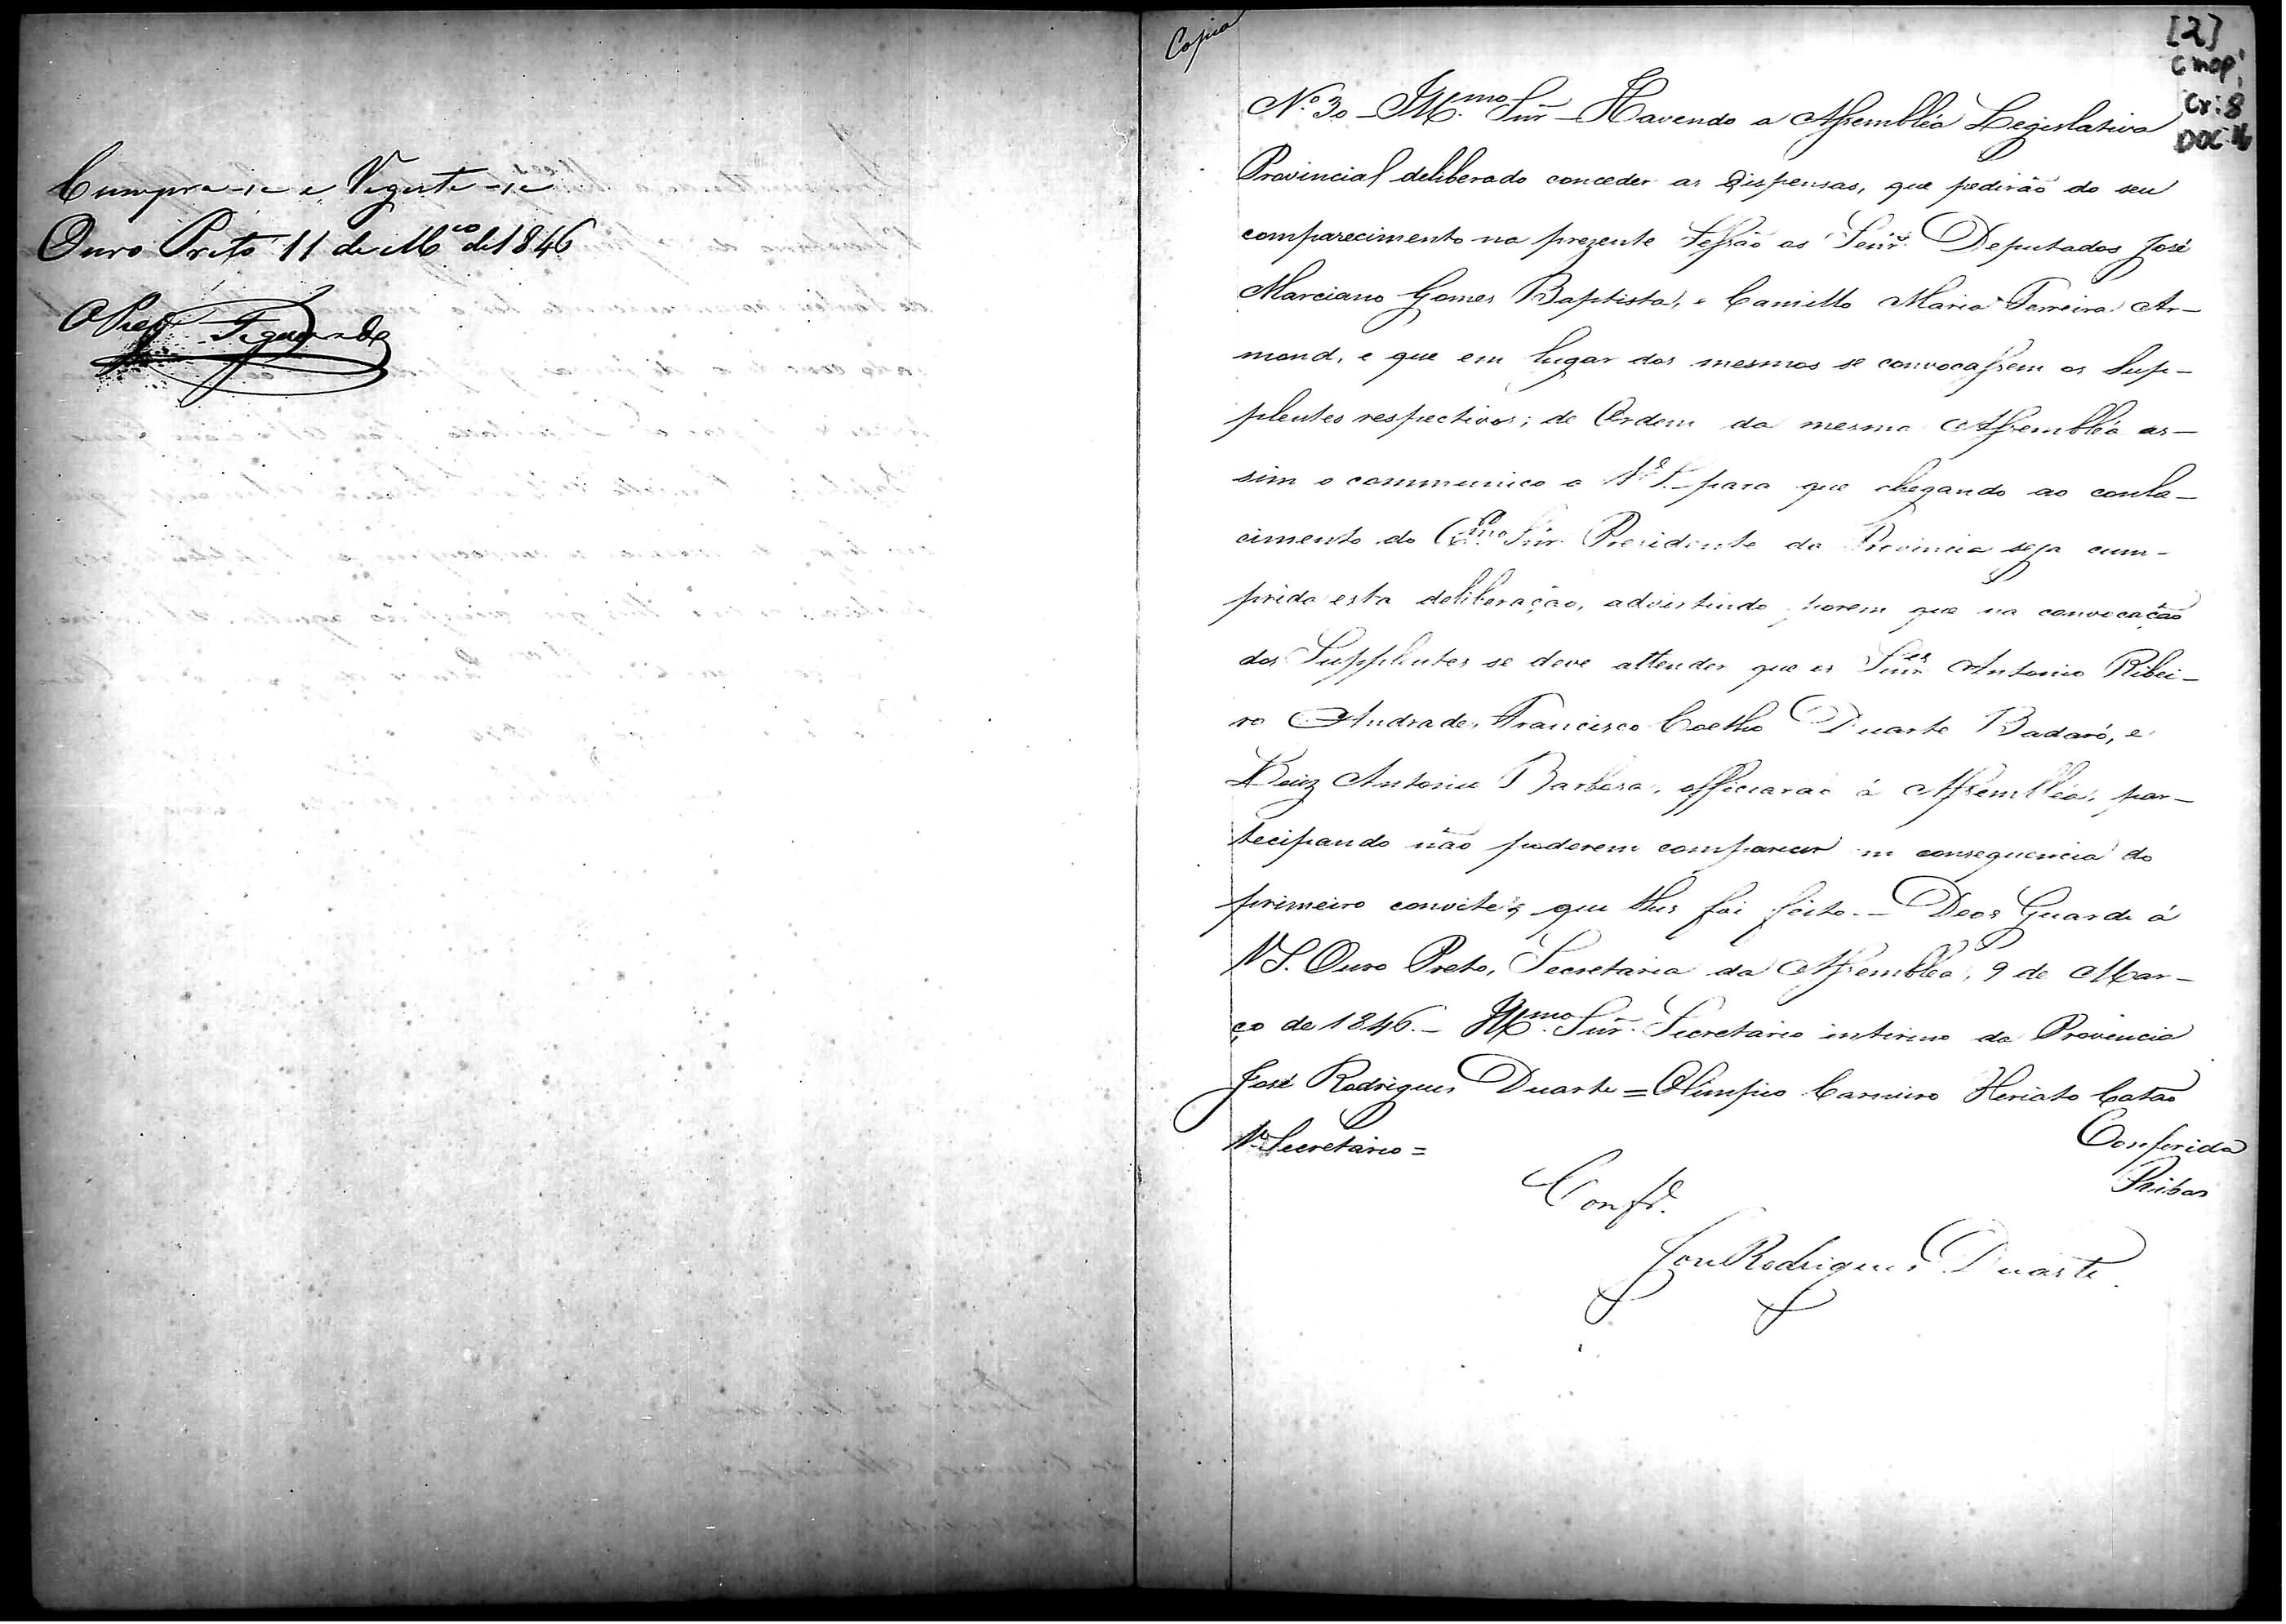 Cumpra-se e Registe-se
Ouro Preto 11 de M.ço de 1846
Figueiredo
Copia
[2]
CMOP
Cx: 8
DOC: 16
N.º 30 - Ill.mo Snr - Havendo a Assembléa Legislativa
Provincial deliberado conceder as Dispensas, que pedirão do seu
comparecimento na prezente Sessão os Senr.es Deputados José
Marciano Gomes Baptista, e Camillo Maria Ferreira Ar-
mond, e que em lugar dos mesmos se convocassem os Sup-
plentes respectivos; de Ordem da mesma Assembléa as-
sim o communico a V. S. para que chegando ao conhe-
cimento do Ex.mo Snr. Presidente da Provincia seja cum-
prida esta deliberação, advirtindo porem que na convocação
dos Supplentes se deve attender que os Snr.es Antonio Ribei-
ro Andrade, Francisco Coelho Duarte Badaró, e
Luiz Antonio Barbosa, officiarão á Assembléa, par-
tecipando não poderem comparecer em consequencia do
primeiro convite, que lhes foi feito. - Deos Guarde á
V S. Ouro Preto, Secretaria da Assembléa, 9 de Mar-
ço de 1846. - Ill.mo Snr. Secretario interino da Provincia
José Rodrigues Duarte = Olimpio Carneiro Viriato Catão
1.º Secretario =
Conferida
Ribas
Conf.e
José Rodrigues Duarte